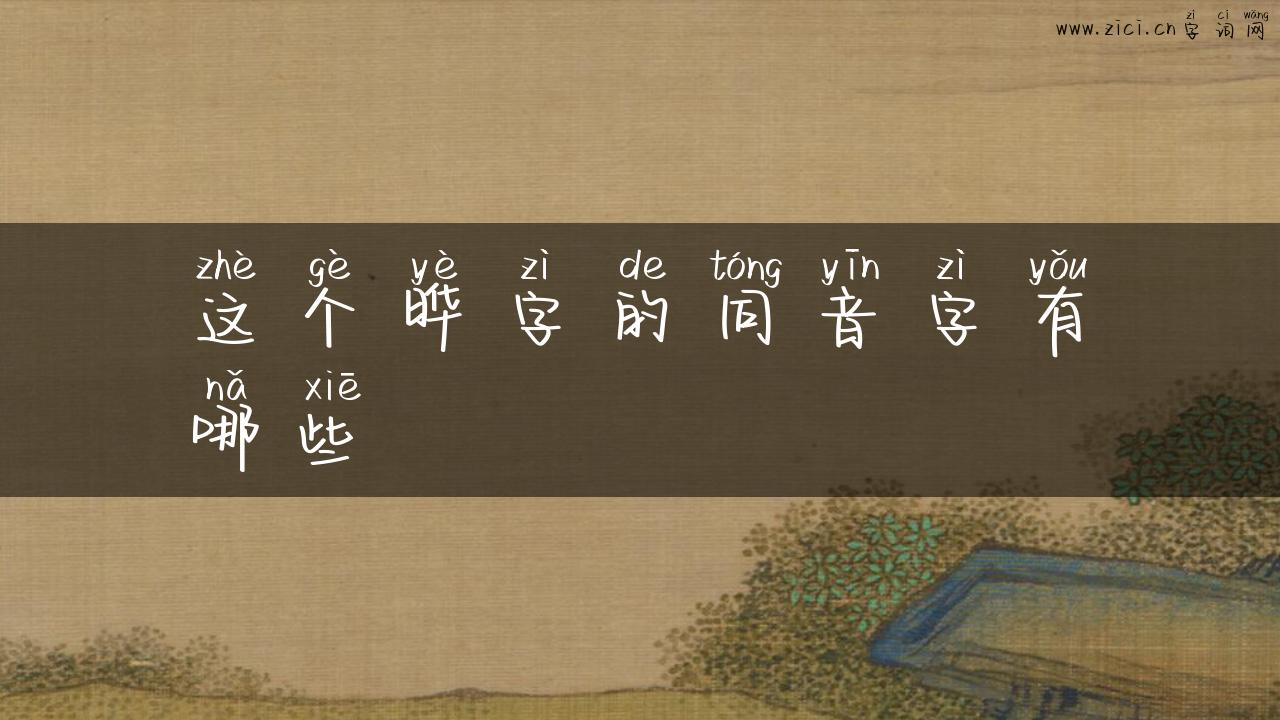 zì cí wǎng
www.zici.cn 字词网
zhè gè yè zì de tóng yīn zì yǒu
这个晔字的同音字有
nǎ xiē
哪些